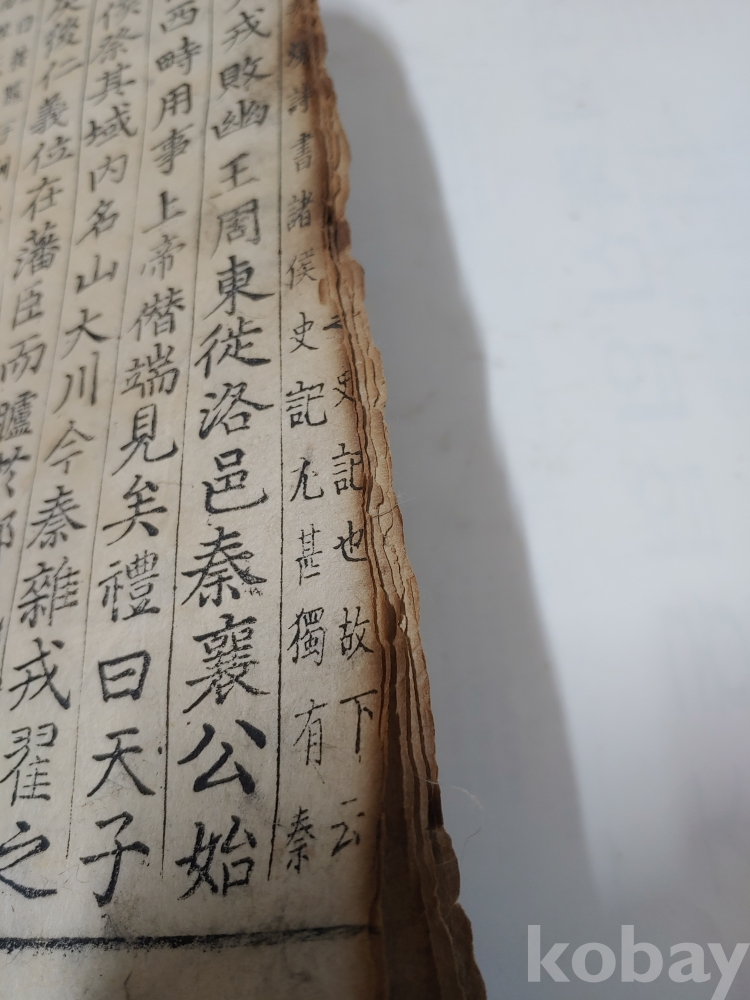 史記也故下云
詩書諸侯史記尤甚獨有秦
戎敗幽王周東徙洛邑秦襄公始
西畤用事上帝僭端見矣禮曰天子
侯祭其域内名山大川今秦雜戎翟之
後仁義位在藩臣而臚於郊